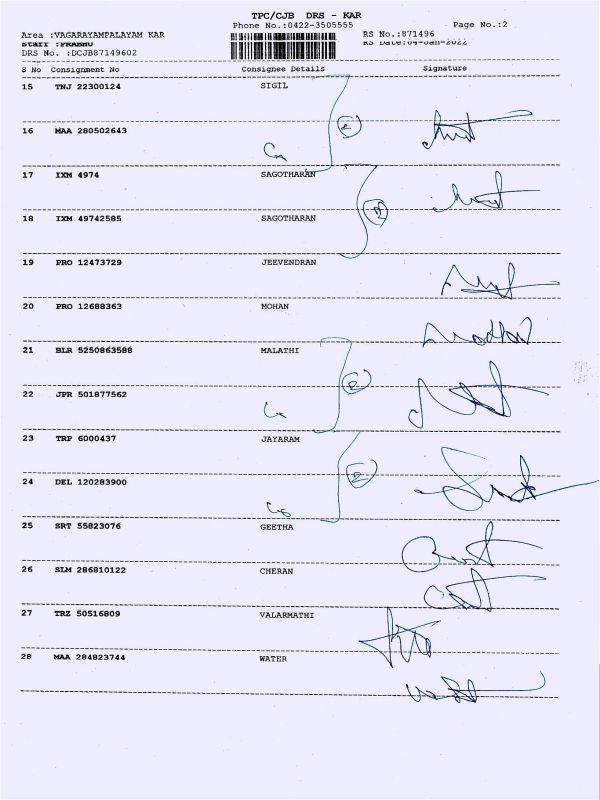 TPC/CJB DRS - KAR
Phone No.:0422-3505555 Page No.:2
Area :VAGARAYAMPALAYAM KAR RS No.:871496
Staff :PRABHU RS Date:04-Jan-2022
DRS No. :DCJB87149602
S No Consignment No Consignee Details Signature
15 TNJ 22300124 SIGIL
16 MAA 280502643
17 IXM 4974 SAGOTHARAN
18 IXM 49742585 SAGOTHARAN
19 PRO 12473729 JEEVENDRAN
20 PRO 12688363 MOHAN
21 BLR 5250863588 MALATHI
22 JPR 501877562
23 TRP 6000437 JAYARAM
24 DEL 120283900
25 SRT 55823076 GEETHA
26 SLM 286810122 CHERAN
27 TRZ 50516809 VALARMATHI
28 MAA 284823744 WATER